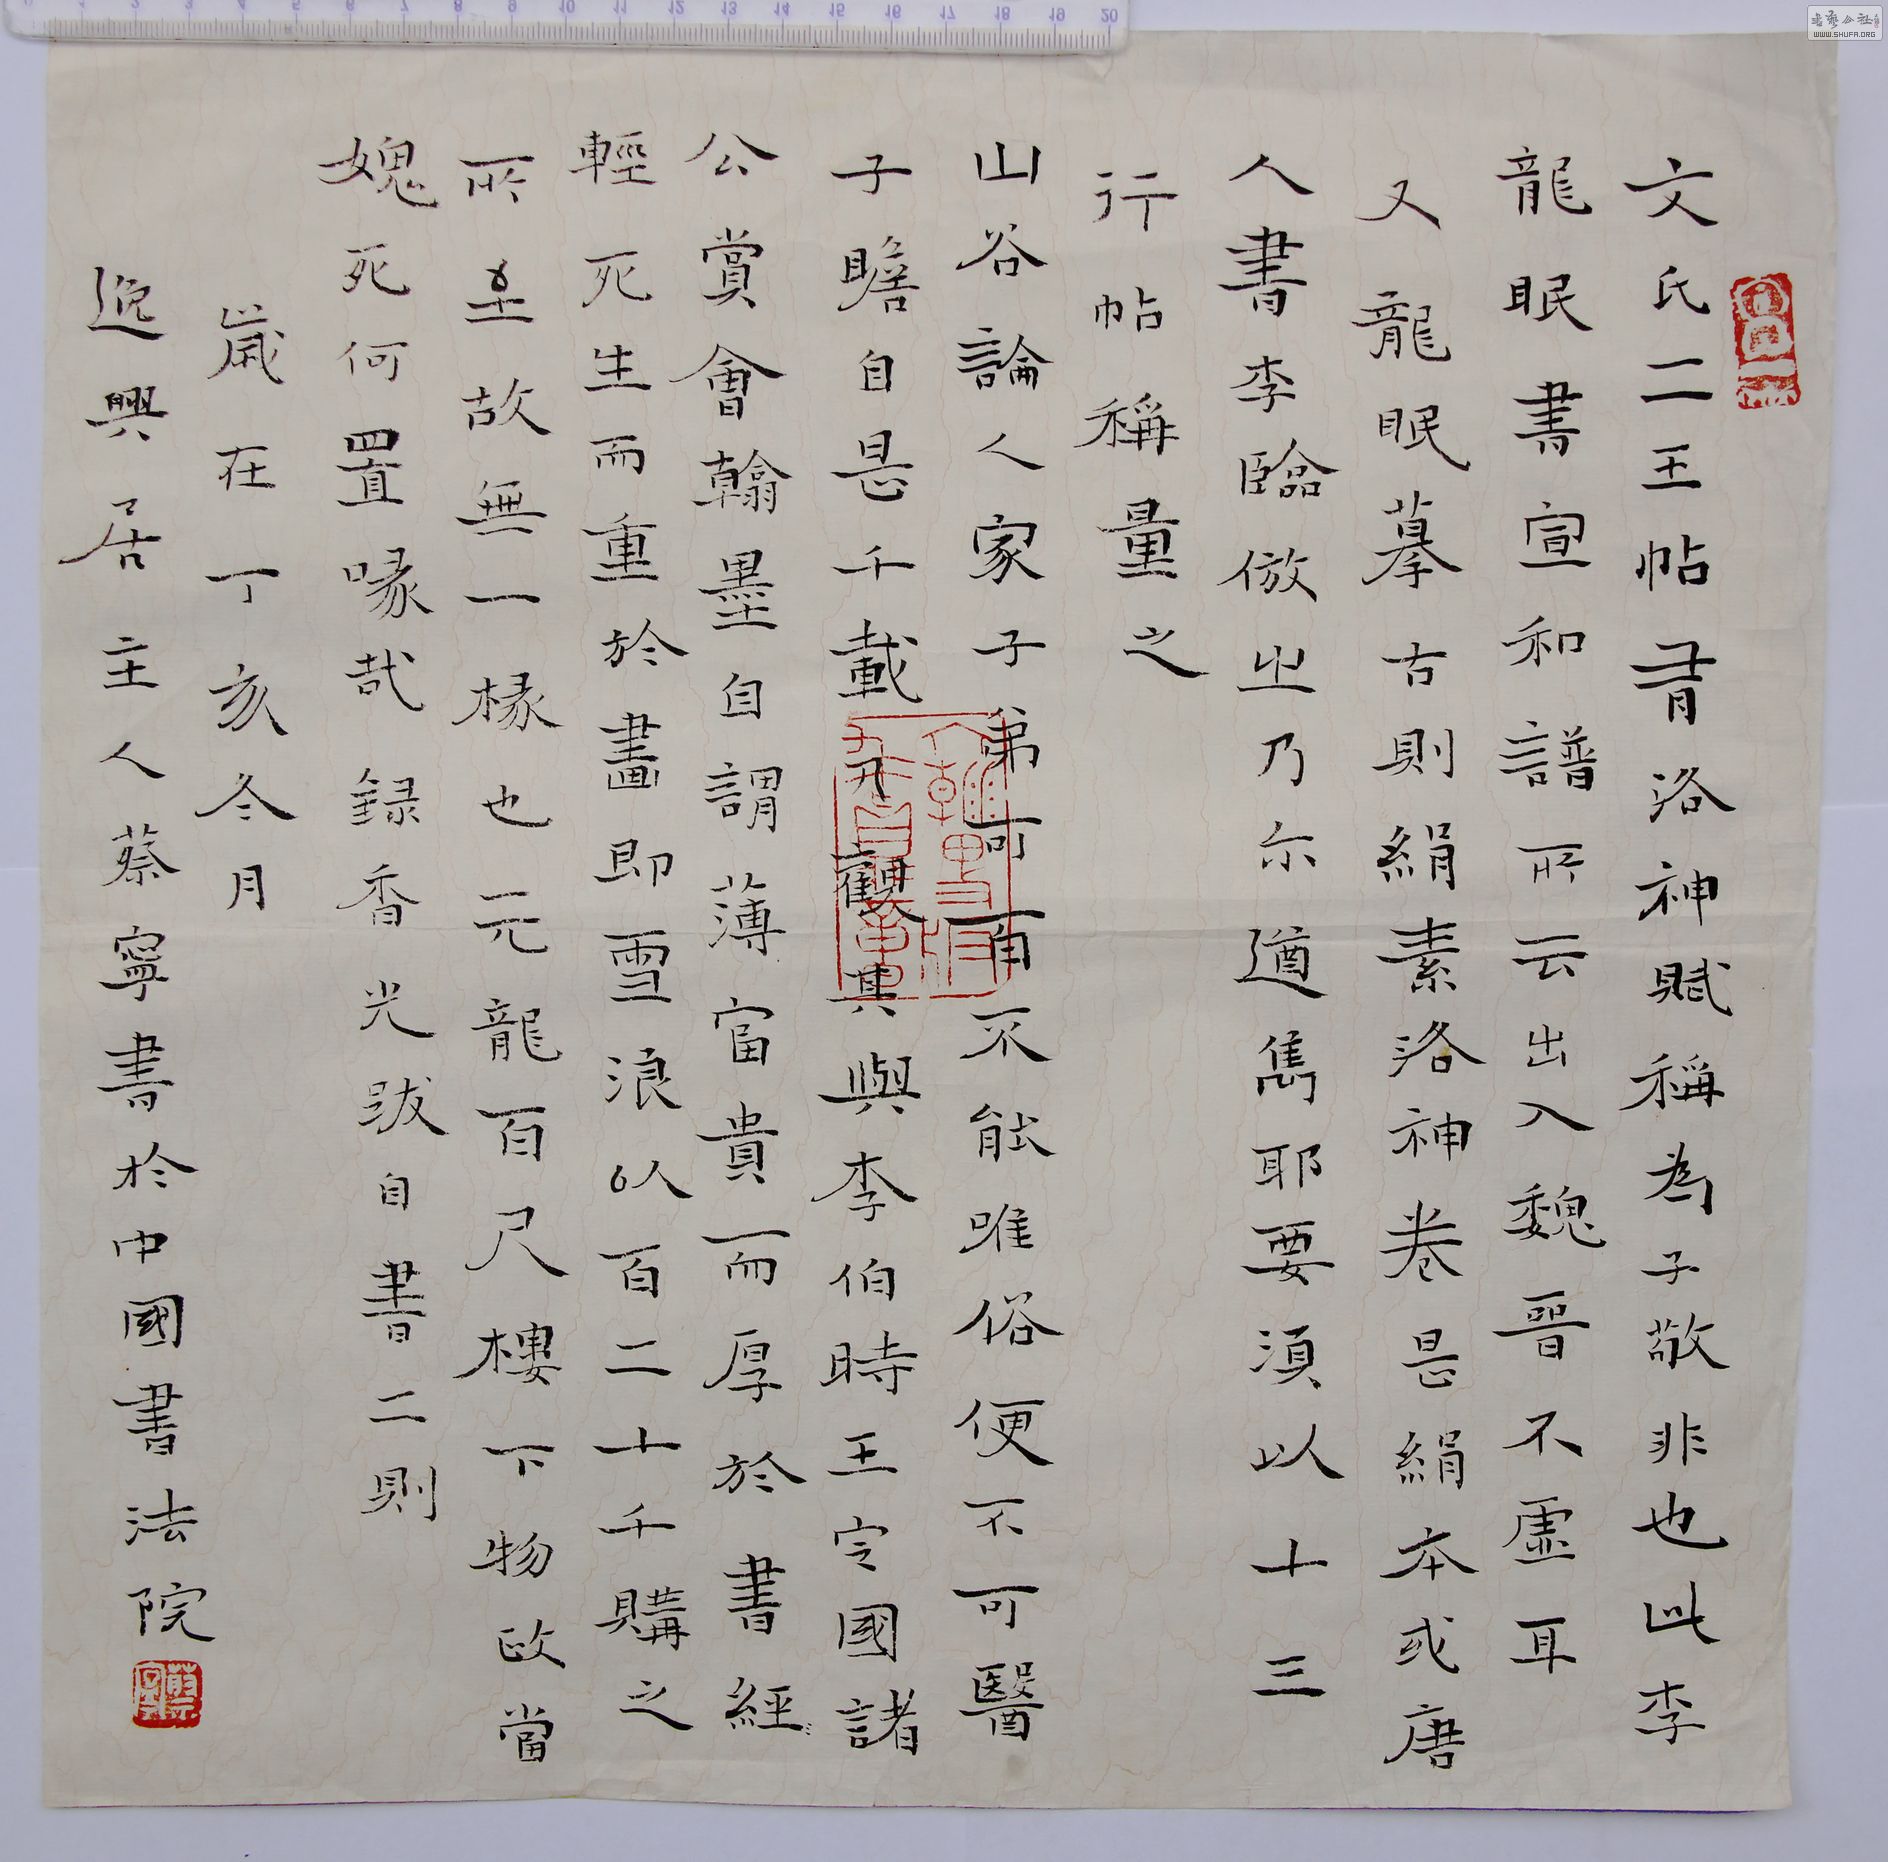 文氏二王帖有洛神賦稱為子敬非也此李
龍眠書宣和譜所云出入魏晉不虛耳
又龍眠摹古則絹素洛神卷是絹本或唐
人書李臨倣之乃尔遒雋耶要須以十三
行帖稱量之
山谷論人家子弟可百不能唯俗便不可醫
子瞻自是千載 觀其與李伯時王定國諸
公賞會翰墨自謂薄富貴而厚於書經
輕死生而重於畫即雪浪以百二十千購之
所至故無一椽也元龍百尺樓下物政當
媿死何置喙哉錄香光跋自書二則
歲在丁亥冬月
逸興居主人蔡寧書於中國書法院
蔡寧
書藝公社
WWW.SHUFA.ORG
0 1 2 3 4 5 6 7 8 9 10 11 12 13 14 15 16 17 18 19 20